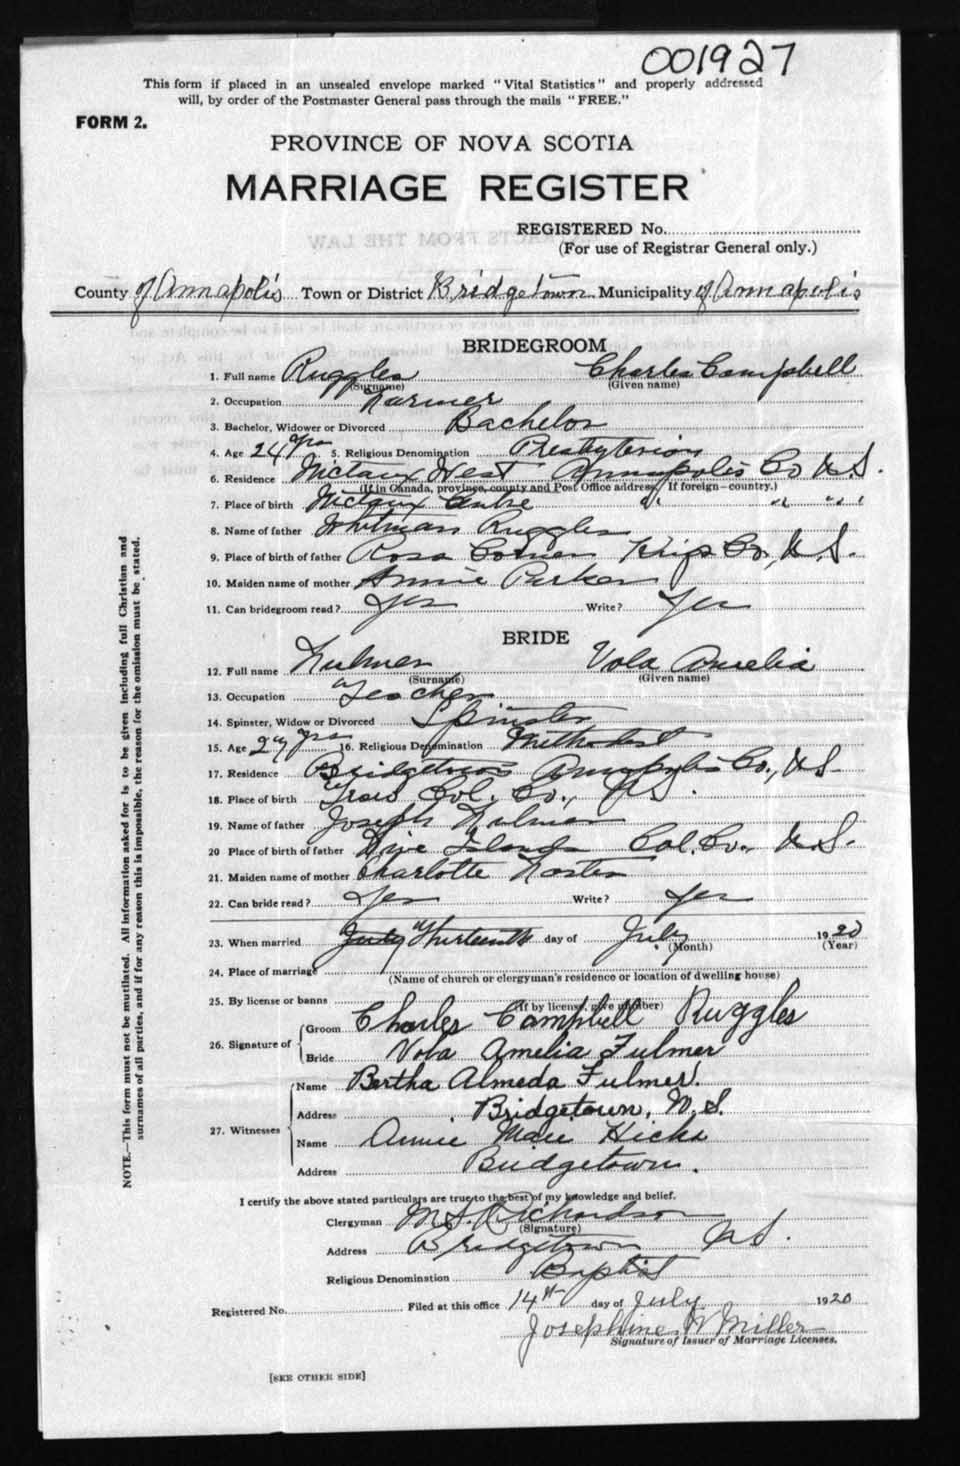 001927
This form if placed in an unsealed envelope marked "Vital Statistics" and properly addressed
will, by order of the Postmaster General pass through the mails "FREE."
FORM 2.
PROVINCE OF NOVA SCOTIA
MARRIAGE REGISTER
REGISTERED No.
(For use of Registrar General only.)
County of Annapolis Town or District Bridgetown Municipality of Annapolis
BRIDEGROOM
1. Full name Ruggles Charles Campbell
(Surname) (Given name)
2. Occupation Farmer
3. Bachelor, Widower or Divorced Bachelor
4. Age 24 yrs 5. Religious Denomination Presbyterian
6. Residence Nictaux West Annapolis Co N.S.
(If in Canada, province, county and Post Office address. If foreign—country.)
7. Place of birth Nictaux Centre " " " "
8. Name of father Whitman Ruggles
9. Place of birth of father Ross Corner Kings Co., N.S.
10. Maiden name of mother Annie Parker
11. Can bridegroom read? Yes Write? Yes
BRIDE
12. Full name Fulmer Vola Amelia
(Surname) (Given name)
13. Occupation Teacher
14. Spinster, Widow or Divorced Spinster
15. Age 27 yrs 16. Religious Denomination Methodist
17. Residence Bridgetown Annapolis Co., N.S.
18. Place of birth Truro Col. Co., N.S.
19. Name of father Joseph Fulmer
20 Place of birth of father Five Islands Col. Co., N.S.
21. Maiden name of mother Charlotte Foster
22. Can bride read? Yes Write? Yes
23. When married July Thirteenth day of July 1920
(Month) (Year)
24. Place of marriage
(Name of church or clergyman's residence or location of dwelling house)
25. By license or banns
(If by license, give number)
26. Signature of Groom Charles Campbell Ruggles
Bride Vola Amelia Fulmer
27. Witnesses Name Bertha Almeda Fulmer.
Address Bridgetown, N.S.
Name Annie Marie Hicks
Address Bridgetown.
I certify the above stated particulars are true to the best of my knowledge and belief.
Clergyman M.S. Richardson
(Signature)
Address Bridgetown N.S.
Religious Denomination Baptist
Registered No. Filed at this office 14th day of July 1920
Josephine W Miller
Signature of Issuer of Marriage Licenses.
[SEE OTHER SIDE]
NOTE.—This form must not be mutilated. All information asked for is to be given including full Christian and
surnames of all parties, and if for any reason this is impossible, the reason for the omission must be stated.